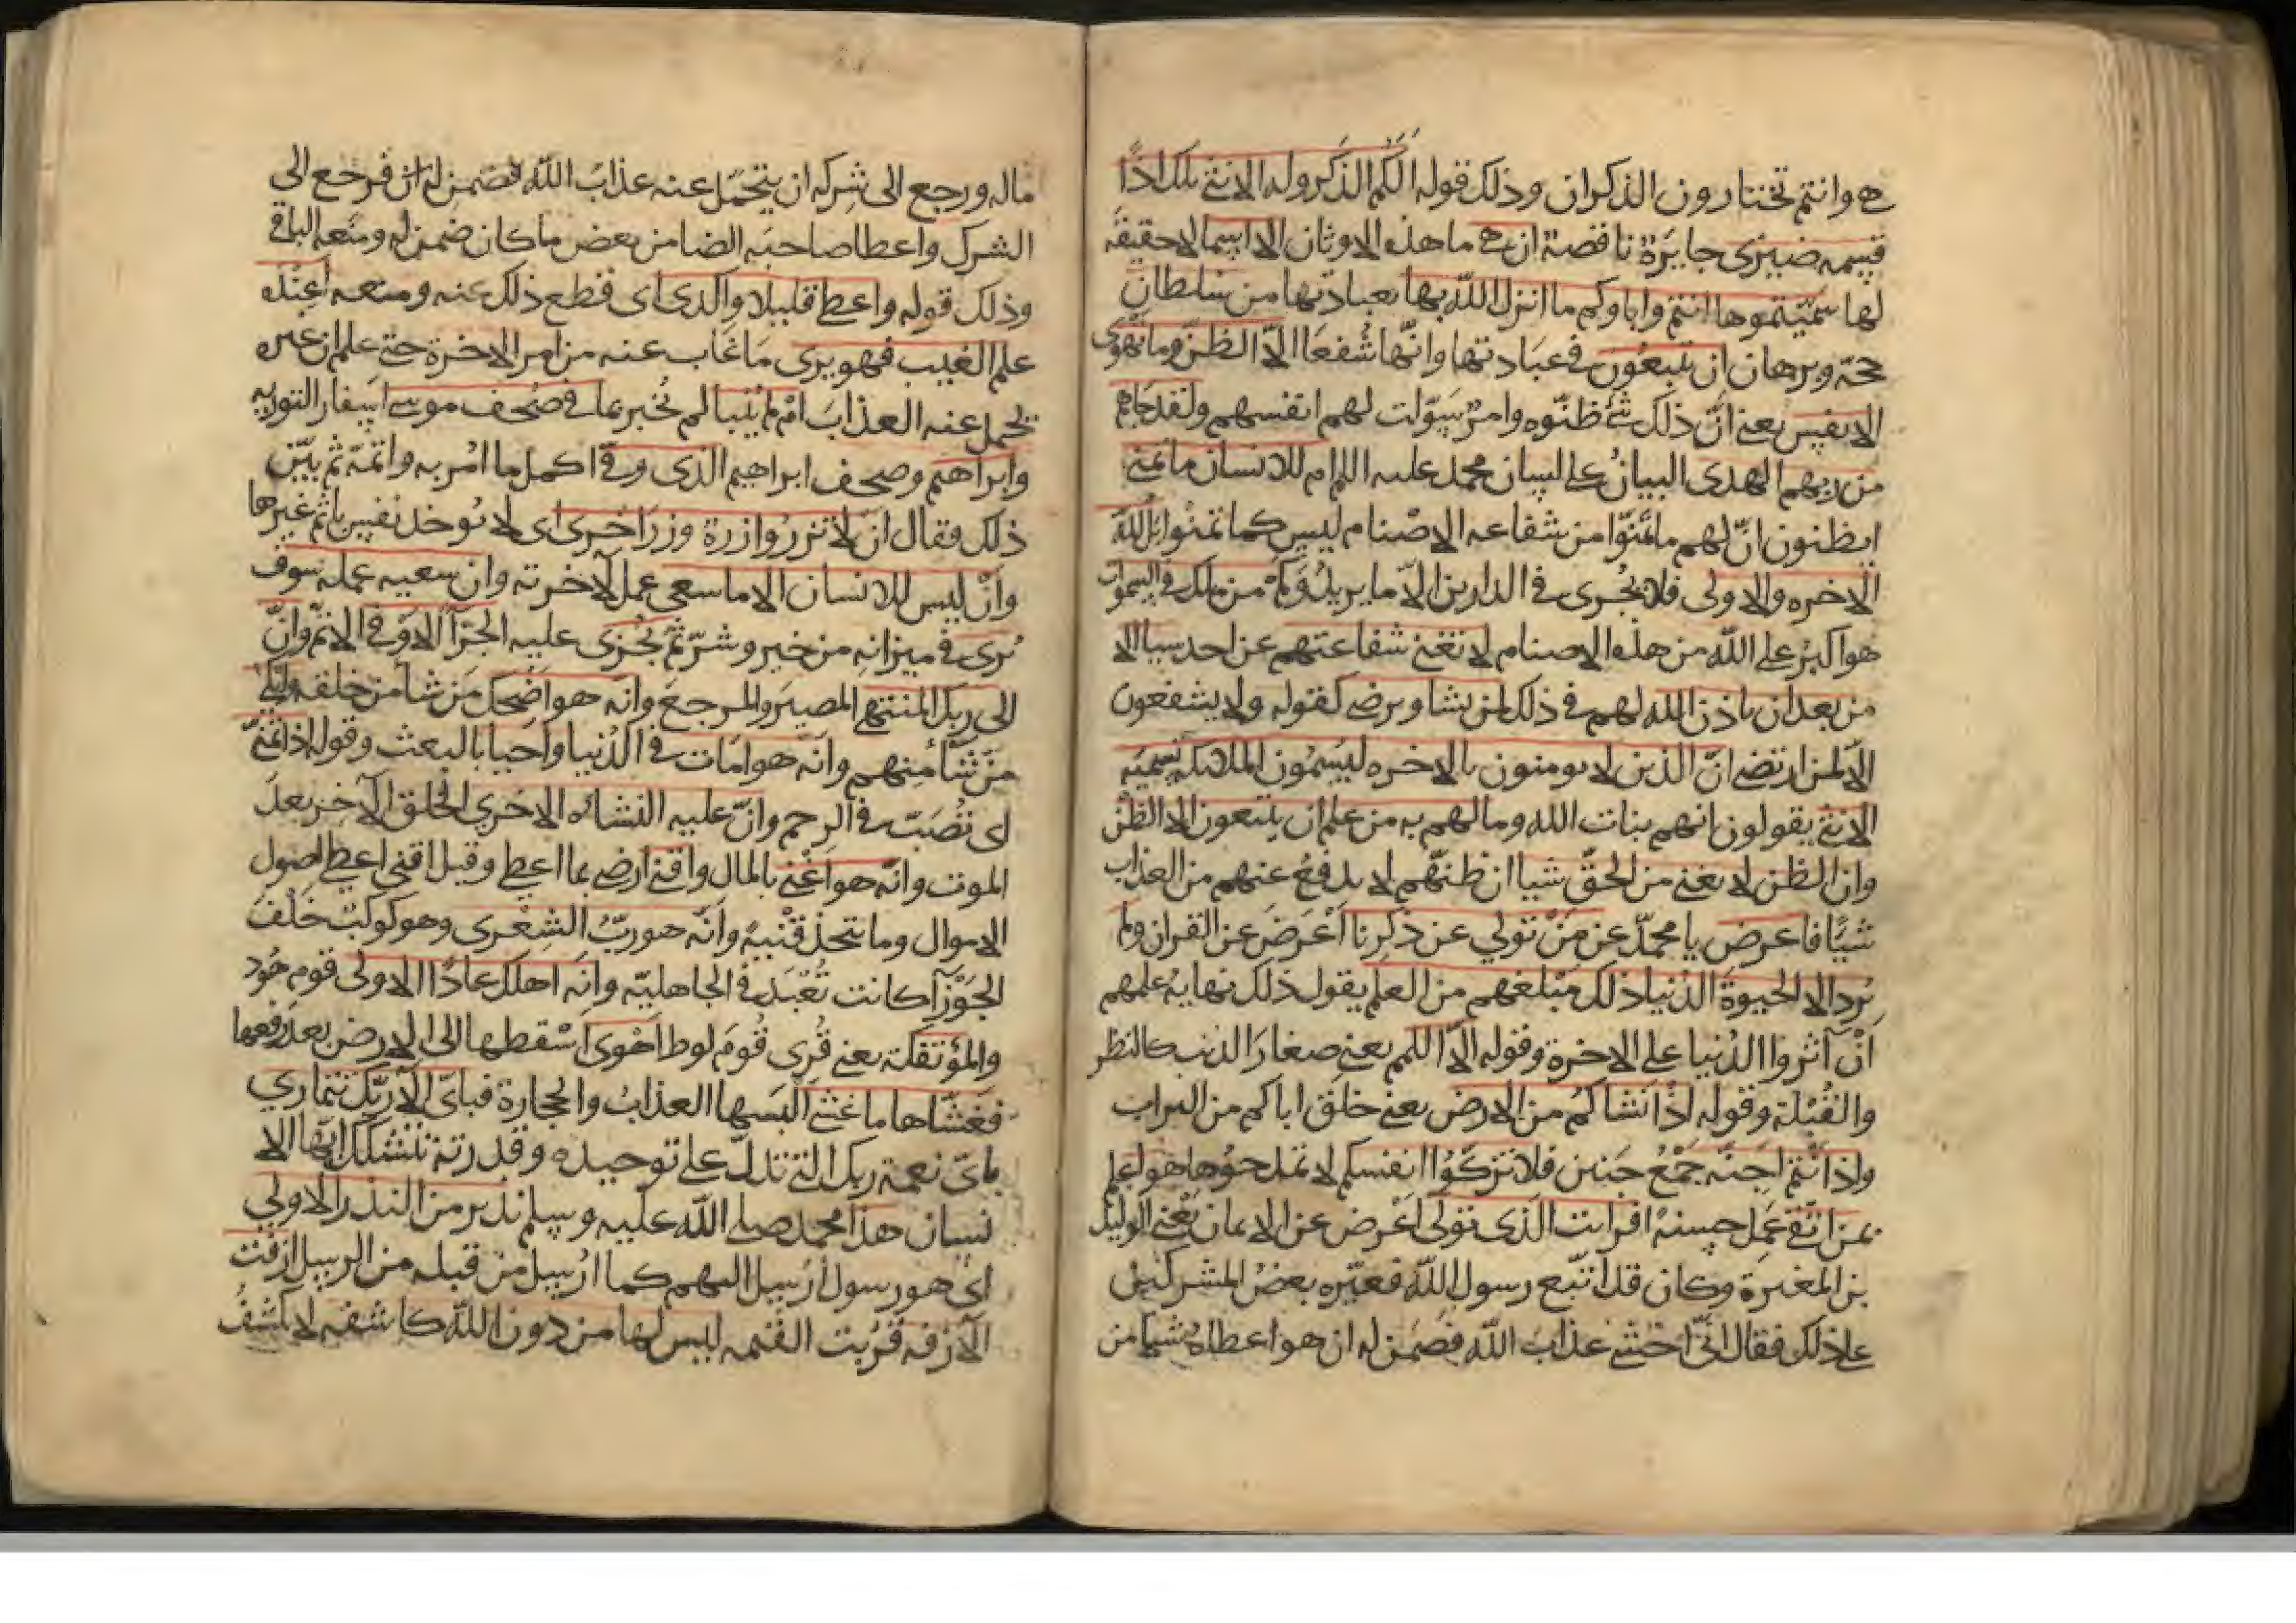 هي وانتم تختارون الذكران وذلك قوله ألكم الذكر وله الانثى تلك اذًا
قسمه ضيزى جايَرة ناقصة ان هي ما هذه الاوثان الا اسما لا حقيقه
لها سمّيتموها انتم واباوكم ما انزل الله بها بعبادتها من سلطان
حجّه وبرهان ان تتبعون في عبادتها وانّها شُفعَا الّا الظنّ وما تهوى
الانفس يعني انّ ذلك شئ ظنّوه وامرٌ سَوّلت لهم انفسهم ولقد جاهم
من ربهم الهدى البيانُ على لسان محمد عليه السلام ام للانسان ما تمنى
ايظنون انّ لهم ما تمنّوا من شفاعه الاصْنام ليس كما تمنوا بل لله
الاخره والاولى فلا يجْرى في الدارين الّا ما يريد وَكمْ من ملك في السموات
هو اكبرُ على الله من هذه الاصنام لا تغني شفاعتهم عن احد سيا الا
من بعد ان ياذن الله لهم في ذلك لمن يشا ويرضى كقوله ولا يشفعون
الّا لمن ارتضى انّ الذين لا يومنون بالاخره ليسَمّون الملائكه تسميَه
الانثى يقولون انهم بنات الله وما لهم به من علم ان يتبعون الا الظنّ
وان الظن لا يغني من الحقّ شيا ان ظنّهم لا يدفعُ عنهم من العذاب
شيًا فاعرض يا محمدّ عن مَنْ تولي عن ذكرنا اَعْرَضَ عن القران ولم
يُرد الا الحيوةَ الدنيا ذلك مَبْلغهم من العلم يقول ذلك نهايهُ علمهم
اَنْ آثروا الدُنيا على الاخرة وقوله الّا اللمم يعني صغارَ الذنب كالنظر
والقُبْلة وقوله اذْ انشاكُم من الارض يعني خلق اباكم من التراب
واذ انتم اجنّه جَمْعُ جَنين فلا تزكّوا انفسكم لا تمدحوُها هو اعلم
بمن اتقى عَمِل حسنهً افرايت الذى تولى اعْرض عن الايمان يَعْني الوليد
بن المغيرة وكان قد اتّبع رسول الله فعيّره بعضُ المشركين
على ذلك فقال انّي اخشى عذابَ الله فضَمن له ان هو اعطاهُ شيا من
ماله ورجع الى شِركه ان يتحمّل عنه عذابَ الله فضمن له ان فرجَع الي
الشرك واعطا صاحبَه الضامن بعض ما كان ضمن له ومنَعه الباقي
وذلك قوله واعطى قليلا واكدى اى قطع ذلك عنه ومنعه أعِنْده
علم الغيب فهو يرى مَا غاب عنه من امر الاخرة حتى علم ان غيره
يحْمل عنه العذابَ امْ لم يُنبا لم يُخبر بما في صُحف موسى اسفار التوريه
وابراهيم وصحف ابراهيم الذى وفّى اكمل ما امُر به واتمّهُ ثم بيّن
ذلك فقال انْ لا تزرُ وازرة وِزرَ اُخرى اى لا تُوخذ نفس باثم غيرها
وانْ ليس للانسان الا ما سعى عمل لآخرته وان سعيه عمله سوف
يُرى في ميزانهِ من خير وشرّ ثمّ يُجْزى عليه الجزآ الاوفى الاتمّ وانّ
الى ربك المنتهى المصيرَ والمرجع وانّه هو اضْحَك مَن شا من خلقه وابكى
منْ شآ منهم وانّه هو امَات في الدُنيا واَحيا بالبعث وقوله اذا تمنى
اى تُصَبّ في الرحم وانّ عليه النشاه الاخرى الخلق الآخِر بعدَ
الموت وانّه هو اَغْنى بالمال واقنى ارضى بما اعطى وقيل اقنى اعطى اصول
الاموال وما يتخذ قنْيهً وانّه هو ربّ الشِعْرى وهو كوكبٌ خَلْف
الجَوْزآ كانت تُعْبَد في الجاهليّه وانّه اهلك عادًا الاولى قوم هُود
والمؤتفكة يعني قُرى قُومَ لوط اَهْوى اَسْقطها الى الارض بعدَ رَفعها
فغشّاها ما غشّى اَلبَسها العذابُ والحجارة فباىّ آلآ ربّك تتمارى
باىّ نعمة ربك التى تدلّ على توحيده وقدرته تتشكّك ايّها الا
نسان هذا محمد صلى الله عليه وسلم نذير من النذر الاولي
اى هو رسول اُرْسِل اليهم كما اُرْسِل مَن قبله من الرسل ازفت
الآزفه قرُبت القيمه ليس لها من دون الله كاشفه لا يكشفُ